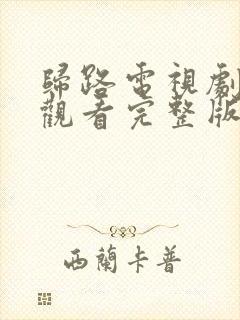 歸路電視劇
觀看完整版
西蘭卡普